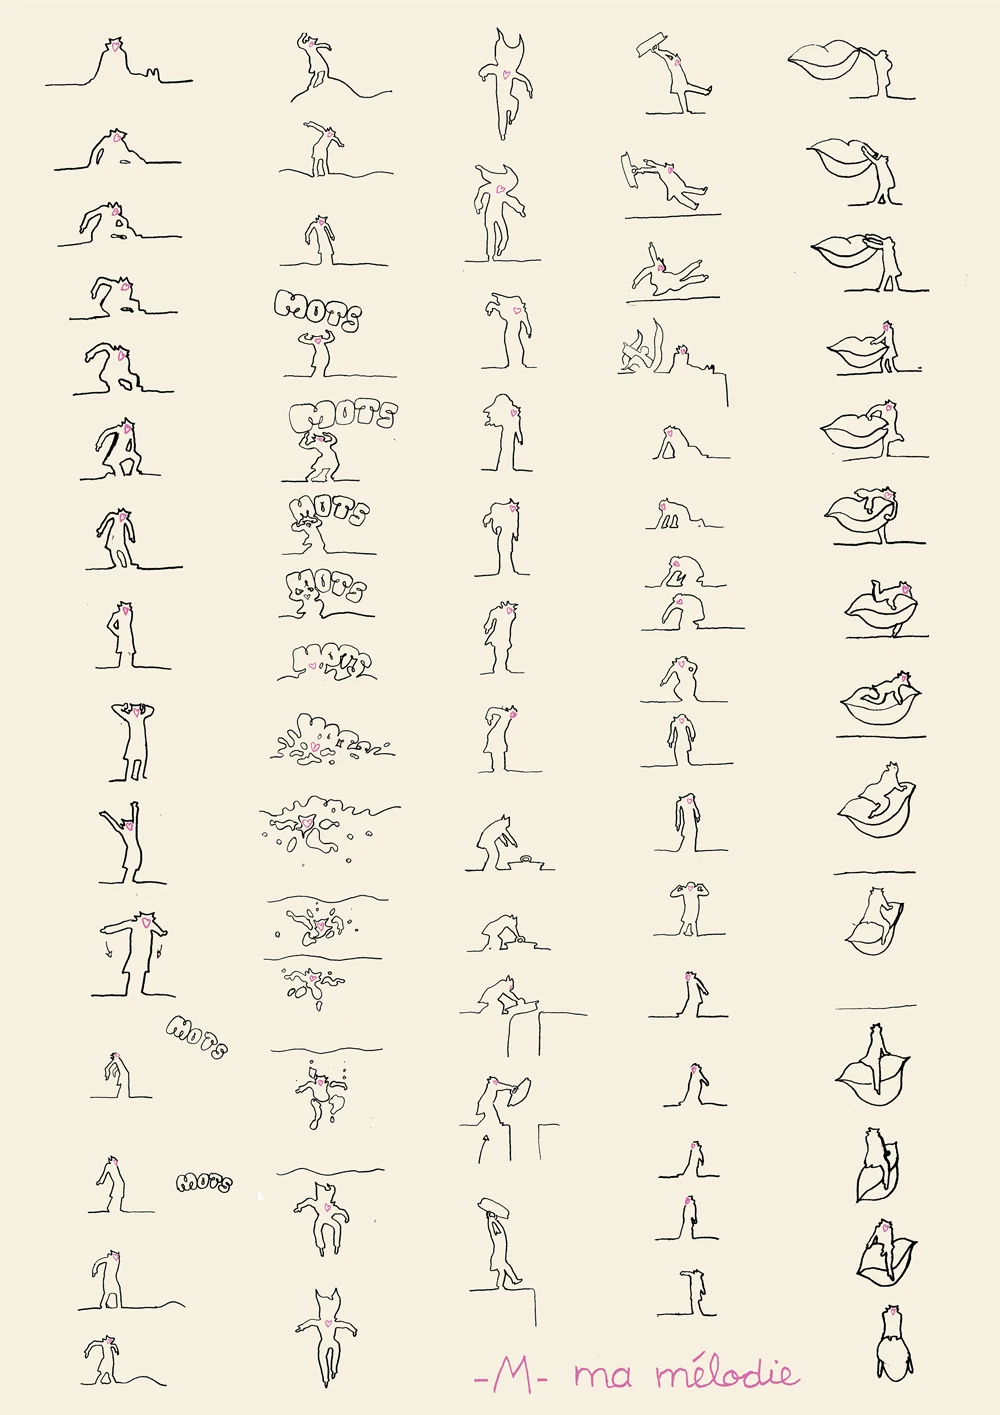 MOTS
MOTS
MOTS
MOTS
MOTS
MOTS
MOTS
-M- ma mélodie